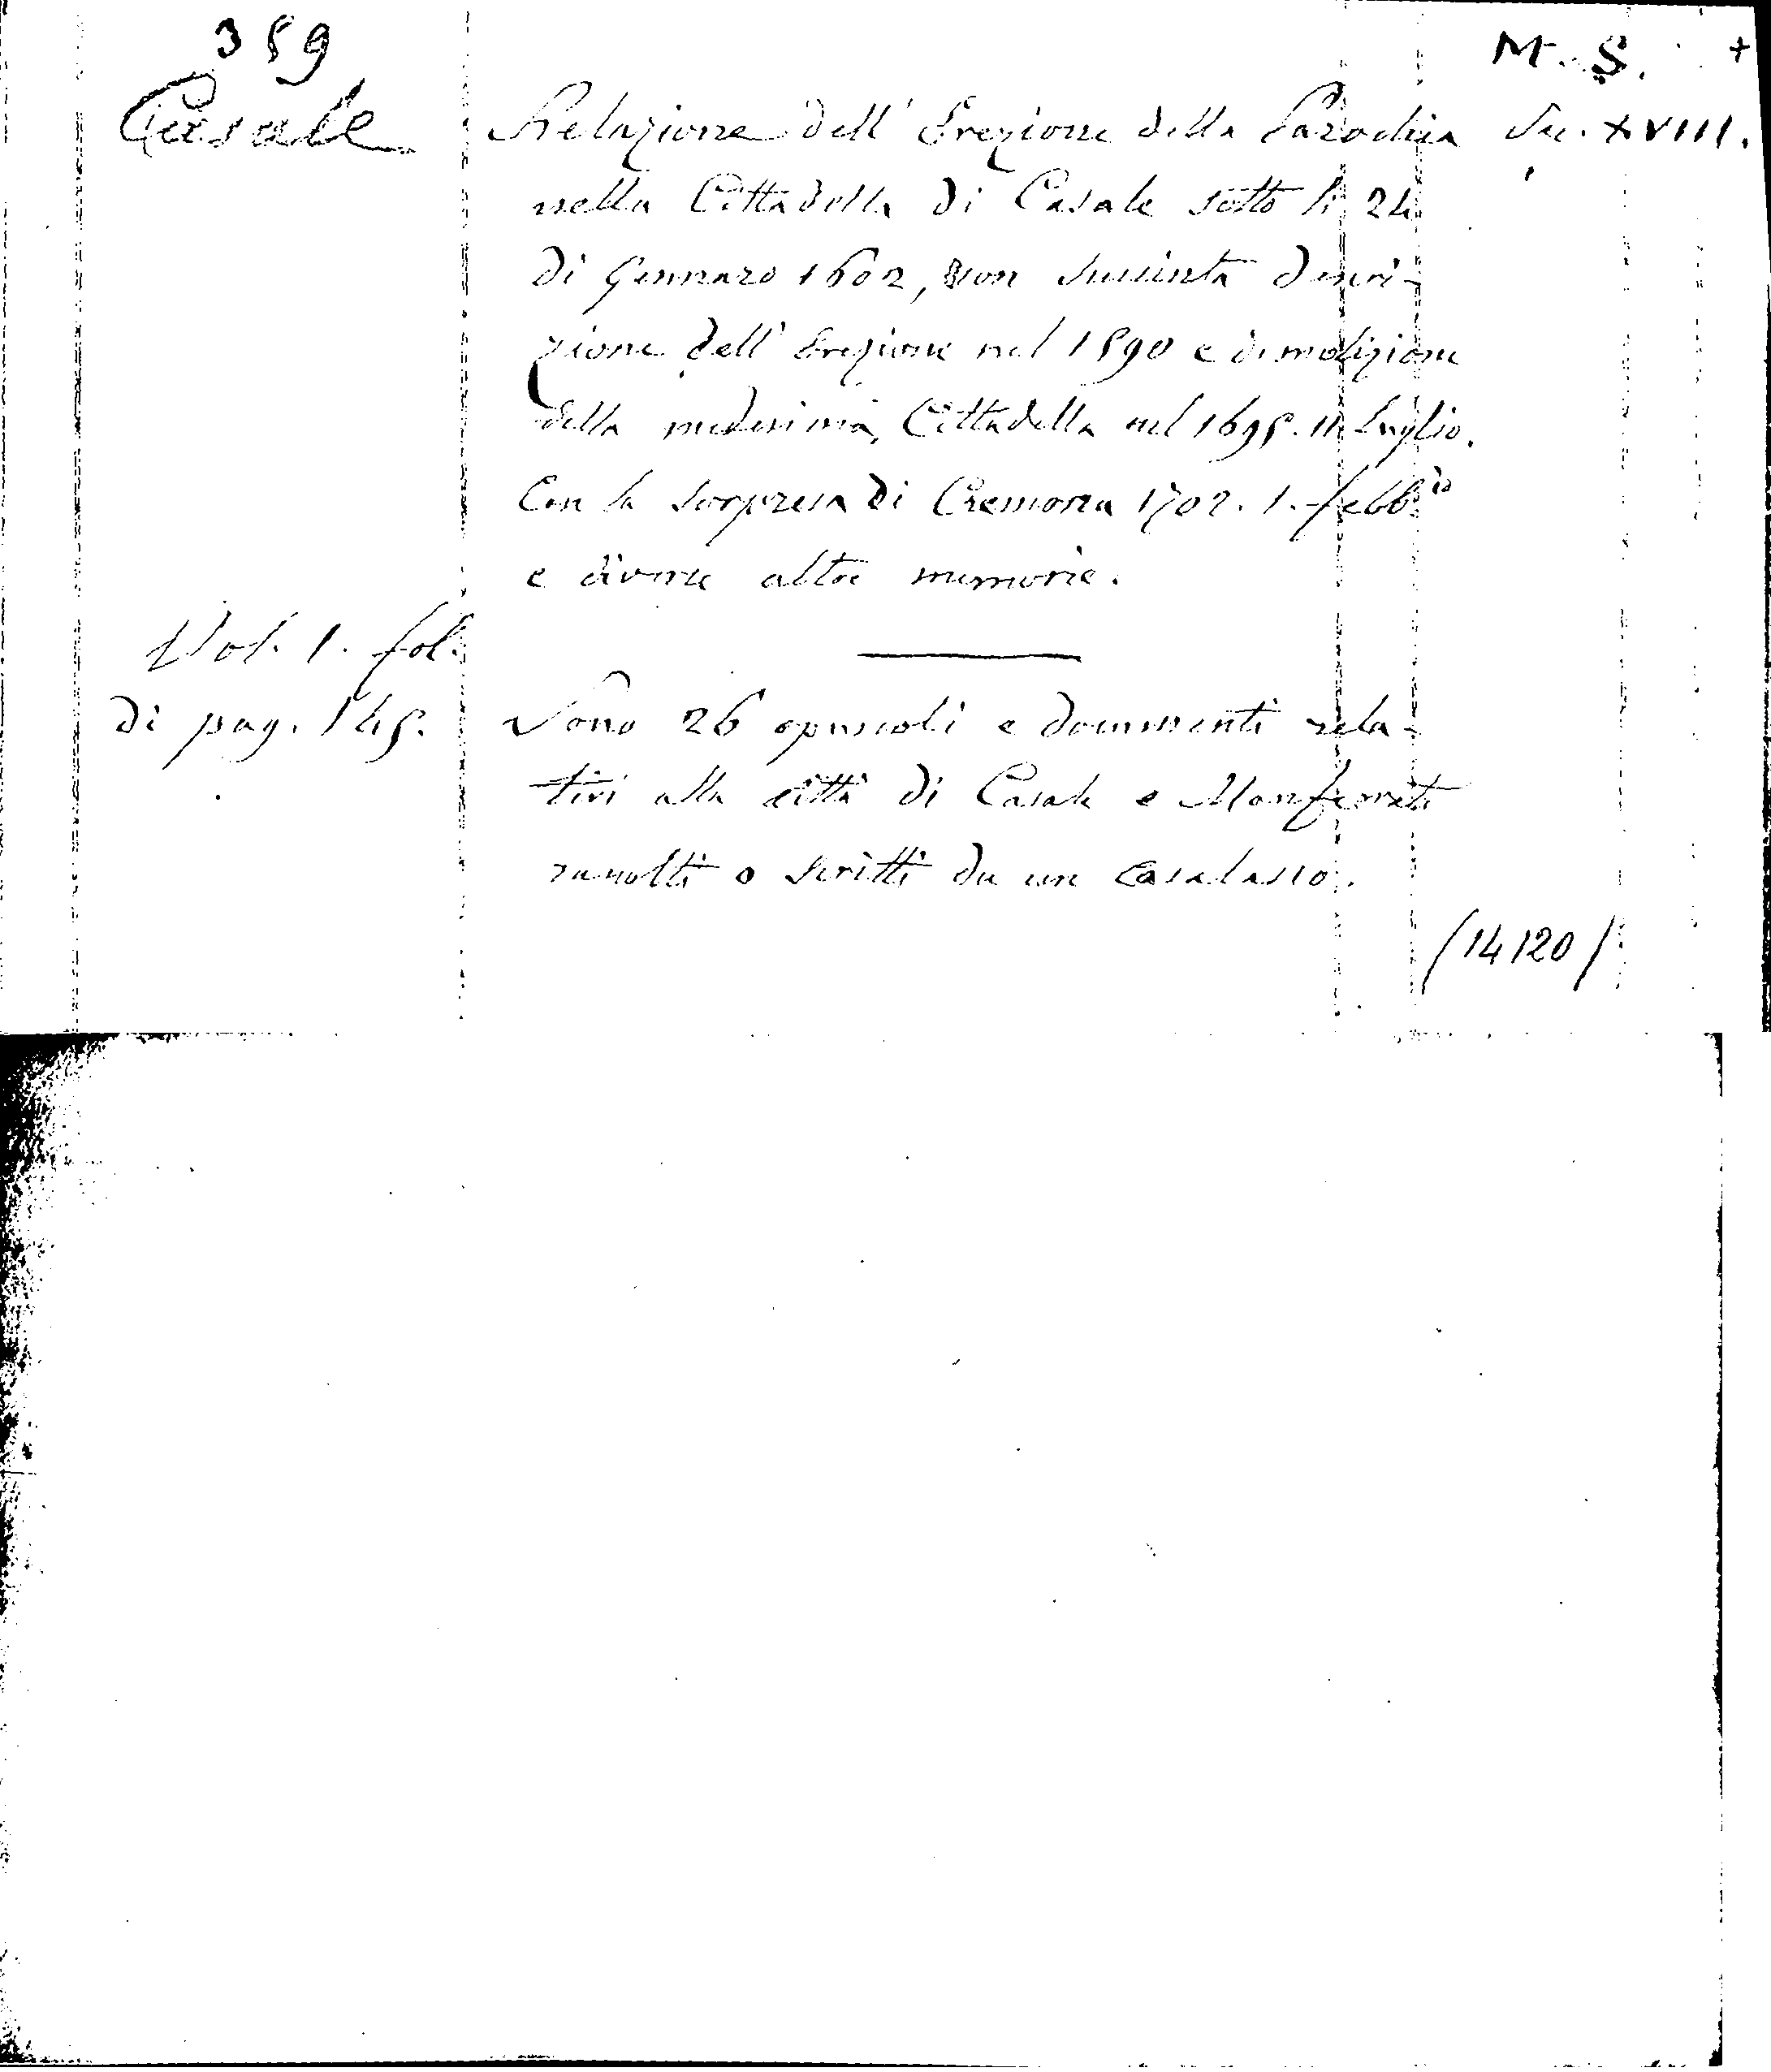 359
M. S. +
Casale
Relazione dell' Erezione della Parochia Sec. XVIII.
nella Cittadella di Casale sotto li 24
di Gennaro 1602, con succinta descri-
zione dell' Erezione nel 1590 e demolizione
della medesima Cittadella nel 1695. 11 Luglio.
Con la sorpresa di Cremona 1702. 1. febb.º
e diverse altre memorie.
Vol. 1. fol.
di pag. 145.
Sono 26 opuscoli e documenti rela-
tivi alla città di Casale e Monferrato
raccolti o scritti da un casalasco.
/14120/